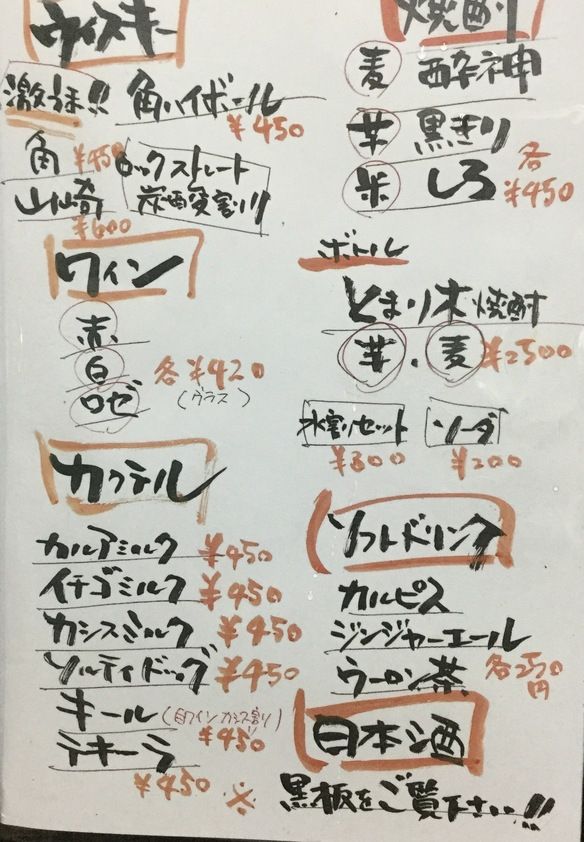 ウイスキー
激うま!! 角ハイボール
¥450
角 ¥450
山崎
¥600
ロックストレート
炭酸割り
ワイン
赤
白
ロゼ
各¥420
(グラス)
カクテル
カルアミルク ¥450
イチゴミルク ¥450
カシスミルク ¥450
ソルティドッグ ¥450
キール (白ワインカシス割り)
¥450
テキーラ
¥450
焼酎
麦 酔神
芋 黒きり
米 しろ
各
¥450
ボトル
とまり木焼酎
芋・麦 ¥2500
水割りセット ソーダ
¥300 ¥200
ソフトドリンク
カルピス
ジンジャーエール
ウーロン茶
各250
円
日本酒
※ 黒板をご覧下さい!!